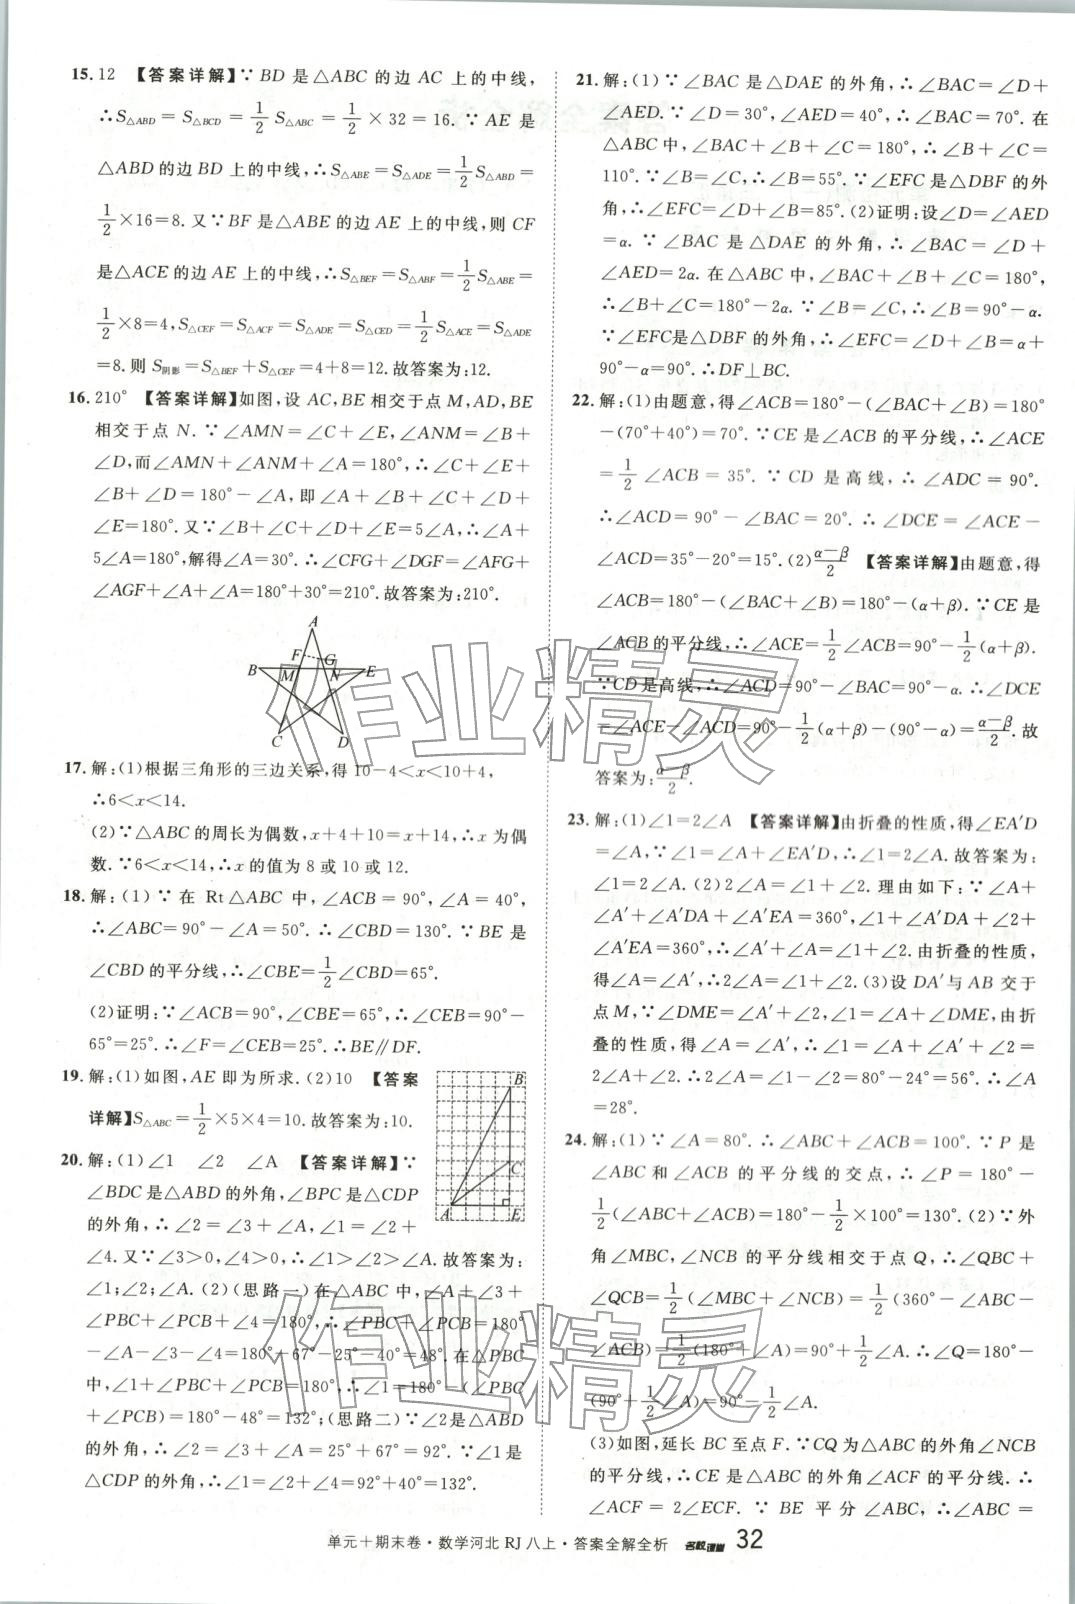 15. 12 【答案详解】∵BD 是△ABC 的边 AC 上的中线,
∴S△ABD=S△BCD=1/2 S△ABC=1/2×32=16. ∵AE 是
△ABD的边 BD 上的中线,∴S△ABE=S△ADE=1/2 S△ABD=
1/2×16=8. 又∵BF 是△ABE的边 AE 上的中线,则 CF
是△ACE的边 AE 上的中线,∴S△BEF=S△ABF=1/2 S△ABE=
1/2×8=4,S△CEF=S△ACF=S△ADE=S△CED=1/2 S△ACE=S△ADE
=8.则 S阴影=S△BEF+S△CEF=4+8=12.故答案为:12.
16. 210° 【答案详解】如图,设 AC,BE 相交于点 M,AD,BE
相交于点 N. ∵∠AMN=∠C+∠E,∠ANM=∠B+
∠D,而∠AMN+∠ANM+∠A=180°,∴∠C+∠E+
∠B+∠D=180°-∠A,即∠A+∠B+∠C+∠D+
∠E=180°. 又∵∠B+∠C+∠D+∠E=5∠A,∴∠A+
5∠A=180°,解得∠A=30°. ∴∠CFG+∠DGF=∠AFG+
∠AGF+∠A+∠A=180°+30°=210°.故答案为:210°.
A
F G
B M N E
C D
17. 解:(1)根据三角形的三边关系,得 10-4<x<10+4,
∴6<x<14.
(2)∵△ABC 的周长为偶数,x+4+10=x+14,∴x 为偶
数. ∵6<x<14,∴x 的值为 8 或 10 或 12.
18. 解:(1)∵在 Rt△ABC 中,∠ACB=90°,∠A=40°,
∴∠ABC=90°-∠A=50°. ∴∠CBD=130°. ∵BE 是
∠CBD 的平分线,∴∠CBE=1/2∠CBD=65°.
(2)证明:∵∠ACB=90°,∠CBE=65°,∴∠CEB=90°-
65°=25°. ∴∠F=∠CEB=25°. ∴BE∥DF.
19. 解:(1)如图,AE 即为所求. (2)10 【答案
详解】S△ABC=1/2×5×4=10. 故答案为:10.
B
C
A E
20. 解:(1)∠1 ∠2 ∠A 【答案详解】∵
∠BDC 是△ABD 的外角,∠BPC 是△CDP
的外角,∴∠2=∠3+∠A,∠1=∠2+
∠4. 又∵∠3>0,∠4>0,∴∠1>∠2>∠A. 故答案为:
∠1;∠2;∠A. (2)(思路一)在△ABC 中,∠A+∠3+
∠PBC+∠PCB+∠4=180°,∴∠PBC+∠PCB=180°
-∠A-∠3-∠4=180°-67°-25°-40°=48°. 在△PBC
中,∠1+∠PBC+∠PCB=180°,∴∠1=180°-(∠PBC
+∠PCB)=180°-48°=132°;(思路二)∵∠2是△ABD
的外角,∴∠2=∠3+∠A=25°+67°=92°. ∵∠1是
△CDP 的外角,∴∠1=∠2+∠4=92°+40°=132°.
21. 解:(1)∵∠BAC 是△DAE 的外角,∴∠BAC=∠D+
∠AED. ∵∠D=30°,∠AED=40°,∴∠BAC=70°. 在
△ABC 中,∠BAC+∠B+∠C=180°,∴∠B+∠C=
110°. ∵∠B=∠C,∴∠B=55°. ∵∠EFC 是△DBF 的外
角,∴∠EFC=∠D+∠B=85°. (2)证明:设∠D=∠AED
=α. ∵∠BAC 是△DAE 的外角,∴∠BAC=∠D+
∠AED=2α. 在△ABC 中,∠BAC+∠B+∠C=180°,
∴∠B+∠C=180°-2α. ∵∠B=∠C,∴∠B=90°-α.
∵∠EFC是△DBF 的外角,∴∠EFC=∠D+∠B=α+
90°-α=90°. ∴DF⊥BC.
22. 解:(1)由题意,得∠ACB=180°-(∠BAC+∠B)=180°
-(70°+40°)=70°. ∵CE 是∠ACB 的平分线,∴∠ACE
=1/2∠ACB=35°. ∵CD 是高线,∴∠ADC=90°.
∴∠ACD=90°-∠BAC=20°. ∴∠DCE=∠ACE-
∠ACD=35°-20°=15°. (2)(α-β)/2 【答案详解】由题意,得
∠ACB=180°-(∠BAC+∠B)=180°-(α+β). ∵CE 是
∠ACB 的平分线,∴∠ACE=1/2∠ACB=90°-1/2(α+β).
∵CD是高线,∴∠ACD=90°-∠BAC=90°-α. ∴∠DCE
=∠ACE-∠ACD=90°-1/2(α+β)-(90°-α)=(α-β)/2. 故
答案为:(α-β)/2.
23. 解:(1)∠1=2∠A 【答案详解】由折叠的性质,得∠EA′D
=∠A,∵∠1=∠A+∠EA′D,∴∠1=2∠A. 故答案为:
∠1=2∠A. (2)2∠A=∠1+∠2. 理由如下:∵∠A+
∠A′+∠A′DA+∠A′EA=360°,∠1+∠A′DA+∠2+
∠A′EA=360°,∴∠A′+∠A=∠1+∠2. 由折叠的性质,
得∠A=∠A′,∴2∠A=∠1+∠2. (3)设 DA′与 AB 交于
点 M,∵∠DME=∠A′+∠2,∠1=∠A+∠DME,由折
叠的性质,得∠A=∠A′,∴∠1=∠A+∠A′+∠2=
2∠A+∠2. ∴2∠A=∠1-∠2=80°-24°=56°. ∴∠A
=28°.
24. 解:(1)∵∠A=80°. ∴∠ABC+∠ACB=100°. ∵P 是
∠ABC 和∠ACB 的平分线的交点,∴∠P=180°-
1/2(∠ABC+∠ACB)=180°-1/2×100°=130°. (2)∵外
角∠MBC,∠NCB 的平分线相交于点 Q,∴∠QBC+
∠QCB=1/2(∠MBC+∠NCB)=1/2(360°-∠ABC-
∠ACB)=1/2(180°+∠A)=90°+1/2∠A. ∴∠Q=180°-
(90°+1/2∠A)=90°-1/2∠A.
(3)如图,延长 BC 至点 F. ∵CQ 为△ABC 的外角∠NCB
的平分线,∴CE 是△ABC 的外角∠ACF 的平分线. ∴
∠ACF=2∠ECF. ∵BE 平分∠ABC,∴∠ABC=
单元+期末卷·数学河北 RJ 八上·答案全解全析 名校课堂 32
作业精灵
作业精灵